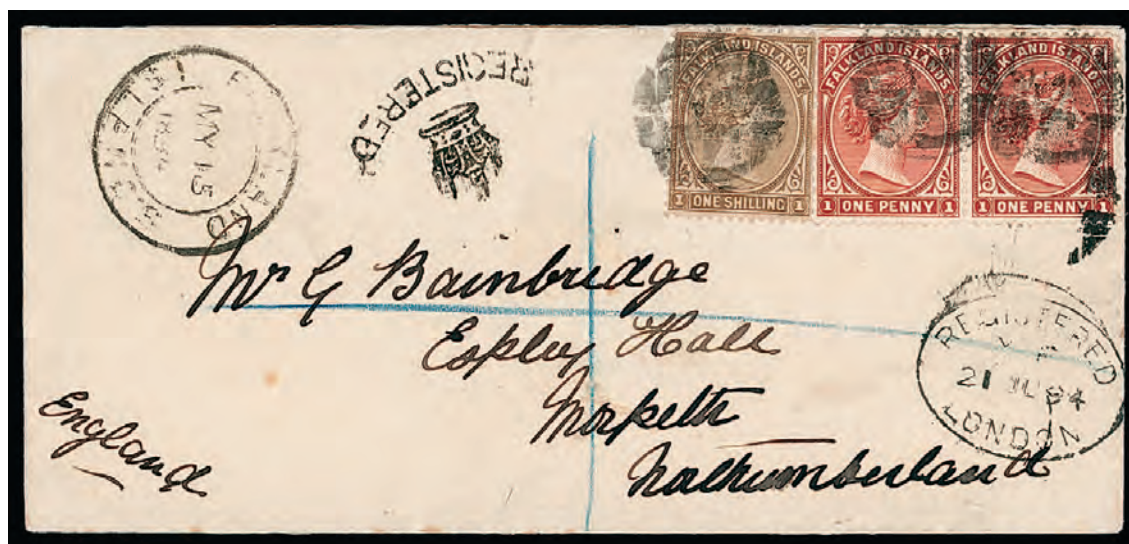 FALKLAND ISLANDS
MY 15
REGISTERED
FALKLAND ISLANDS
1 ONE SHILLING 1
FALKLAND ISLANDS
1 ONE PENNY 1
FALKLAND ISLANDS
1 ONE PENNY 1
Mr G Bainbridge
Espley Hall
Morpeth
Northumberland
England
REGISTERED
21 JL 84
LONDON